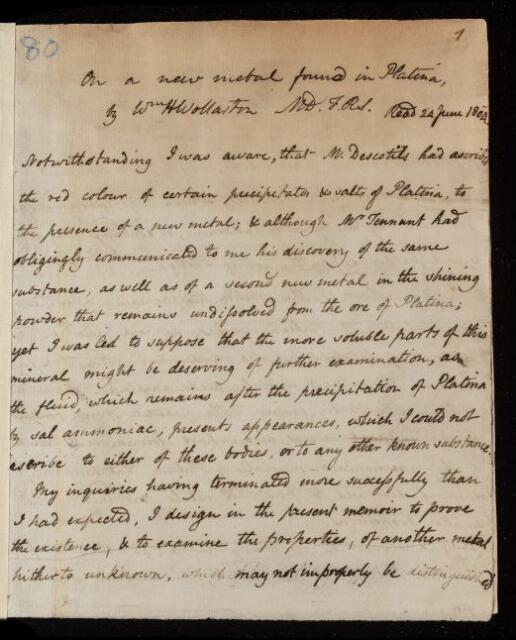 80
1
On a new metal found in Platina,
by Wm H Wollaston MD. F.R.S. Read 24 June 1804
Notwithstanding I was aware, that M. Descotils had ascribed
the red colour of certain precipitates & salts of Platina, to
the presence of a new metal; & although Mr Tennant had
obligingly communicated to me his discovery of the same
substance, as well as of a second new metal in the shining
powder that remains undissolved from the ore of Platina;
yet I was led to suppose that the more soluble parts of this
mineral might be deserving of further examination, as
the fluid, which remains after the precipitation of Platina
by sal ammoniac, presents appearances, which I could not
ascribe to either of these bodies, or to any other known substance.
My inquiries having terminated more successfully than
I had expected, I design in the present memoir to prove
the existence, & to examine the properties, of another metal
hitherto unknown, which may not improperly be distinguished